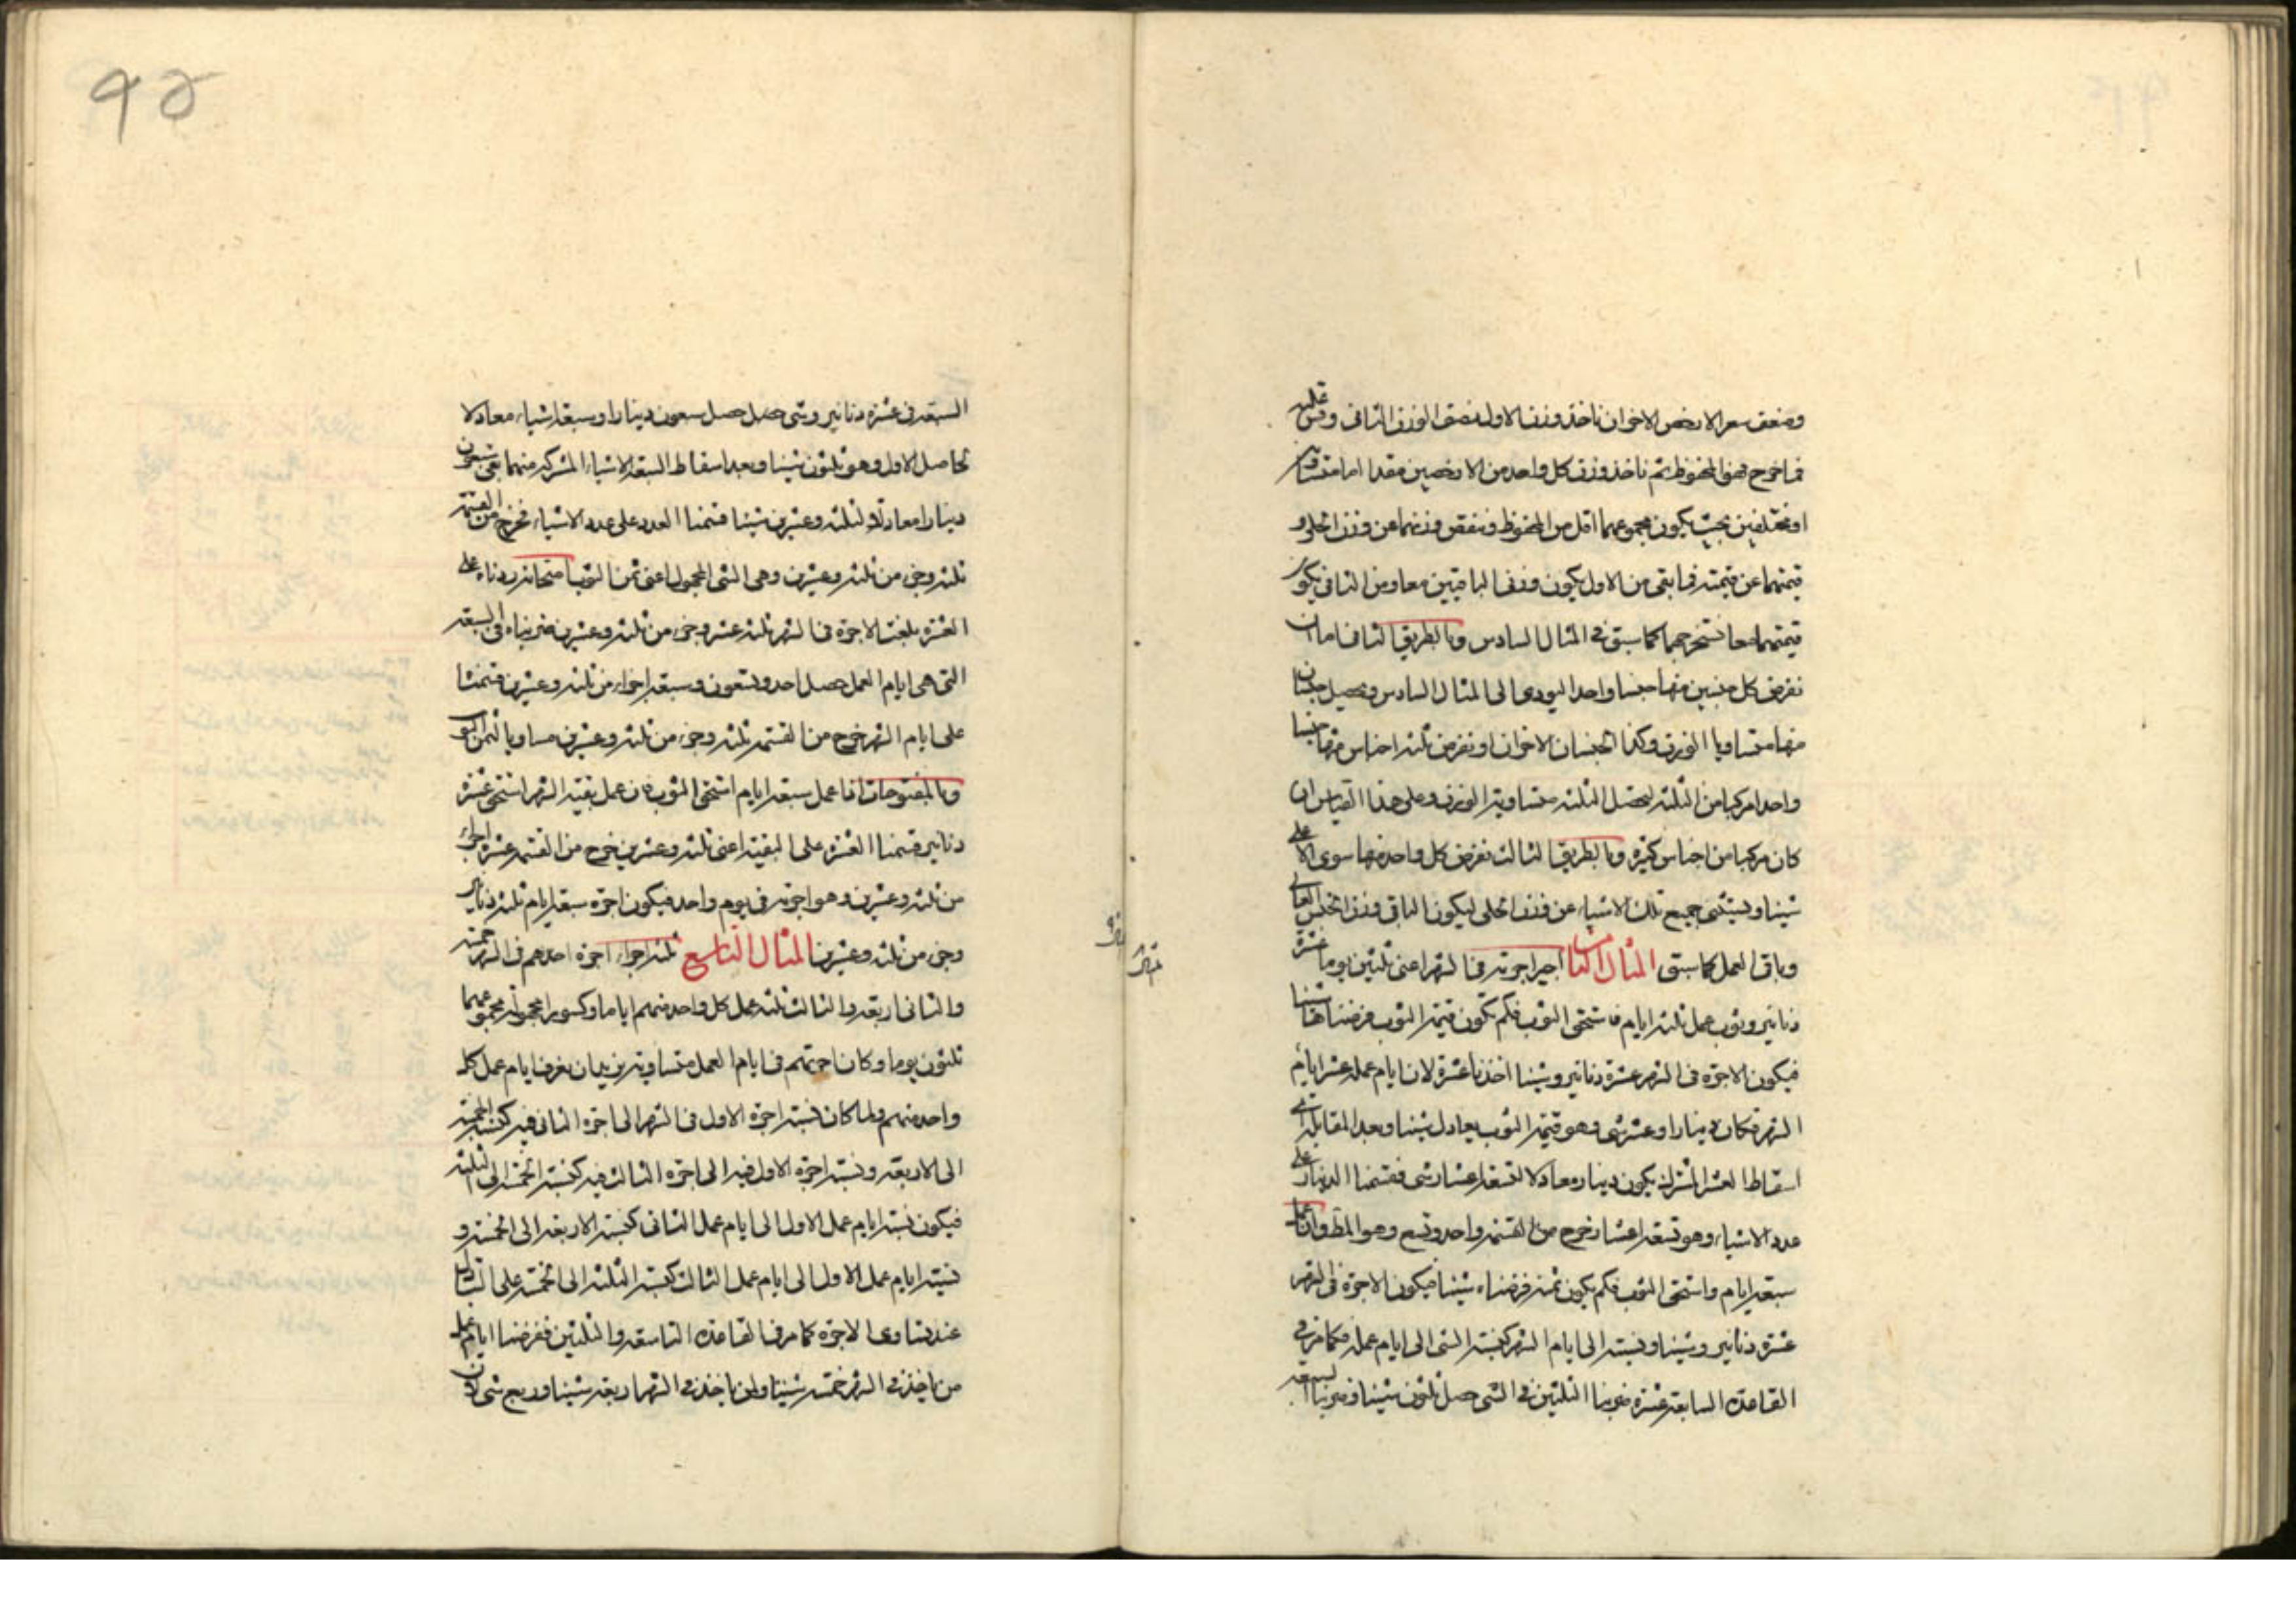 وضعف سعر الارخص الاخر ان ناخذ وزن الاول ونصف الوزن الثانى وقس عليه
فما خرج فهو المحفوظ ثم ناخذ وزن كل واحد من الارخصين مقدارا ما متساو
او مختلفين بحيث يكون مجموعهما اقل من المحفوظ وننقص وزنهما عن وزن الحلى و
قيمتهما عن قيمته فما بقى من الاول يكون وزن الباقيين معا ومن الثانى يكون
قيمتهما معا نستخرجهما كما سبق فى المثال السادس وبالطريق الثانى اما ان
نفرض كل جنسين منها جنسا واحدا ليؤدى الى المثال السادس ويحصل جنسان
منها متساويا الوزن وكذا الجنسان الاخران او نفرض ثلثة اجناس منها جنسا
واحدا مركبا من الثلثة ليحصل الثلثة متساوية الوزن وعلى هذا القياس ان
كان مركبا من اجناس كثيرة وبالطريق الثالث نفرض كل واحد منها سوى الاعلى
شيئا ويستثنى جميع تلك الاشياء عن وزن الحلى ليكون الباقى وزن الجنس العالى
وباقى العمل كما سبق المثال الثامن اجير اجرته فى الشهر اعنى ثلثين يوما عشرة
دنانير وثوب عمل ثلثة ايام فاستحق الثوب فكم تكون قيمة الثوب فرضناها شيئا
فيكون الاجرة فى الشهر عشرة دنانير وشيئا اخذنا عشرة لان ايام عمله عشر ايام
الشهر فكان دينارا وعشر شى وهو قيمة الثوب يعادل شيئا وبعد المقابلة اى
اسقاط العشر المشترك يكون دينار معادلا لتسعة اعشار شى فقسمنا الدينار على
عدد الاشياء وهو تسعة اعشار خرج من القسمة واحد وتسع وهو المط وان عمل
سبعة ايام واستحق الثوب فكم يكون ثمنه فرضناه شيئا فيكون الاجرة فى الشهر
عشرة دنانير وشيئا ونسبته الى ايام الشهر كنسبة الشى الى ايام عمله فكما مر فى
القاعدة السابعة عشرة ضربنا الثلثين فى الشى حصل ثلثون شيئا وضربنا
السبعة فى عشرة دنانير وشى حصل حصل سبعون دينارا وسبعة اشياء معادلا
لحاصل الاول وهو ثلثون شيئا وبعد اسقاط السبعة الاشياء المشتركة منهما بقى سبعون
دينارا معادلا لثلثة وعشرين شيئا قسمنا العدد على عدد الاشياء فخرج من القسمة
ثلثة وجزء من ثلثة وعشرين وهى الشى المجهول اعنى ثمن الثوب امتحانه زدناه على
العشرة بلغت الاجرة فى الشهر ثلثة عشر وجزء من ثلثة وعشرين ضربناه فى السبعة
التى هى ايام العمل حصل احد وتسعون وسبعة اجزاء من ثلثة وعشرين قسمنا
على ايام الشهر خرج من القسمة ثلثة وجزء من ثلثة وعشرين مساويا لثمن الثوب
وبالمفتوحات اذا عمل سبعة ايام استحق الثوب فان عمل بقية الشهر استحق عشرة
دنانير قسمنا العشرة على البقية اعنى ثلثة وعشرين خرج من القسمة عشرة اجزاء
من ثلثة وعشرين وهو اجرته فى يوم واحد فيكون اجرة سبعة ايام ثلثة دنانير
وجزء من ثلثة وعشرين المثال التاسع ثلثة اجراء اجرة احدهم فى الشهر خمسة
والثانى اربعة والثالث ثلثة عمل كل واحد منهم اياما وكسورا مجهولة مجموعهما
ثلثون يوما وكان اجرتهم فى ايام العمل متساوية نريد ان نعرف ايام عمل كل
واحد منهم ولما كان نسبة اجرة الاول فى الشهر الى اجرة الثانى فيه كنسبة الخمسة
الى الاربعة ونسبة اجرة الاول فيه الى اجرة الثالث فيه كنسبة الخمسة الى الثلثة
فيكون نسبة ايام عمل الاول الى ايام عمل الثانى كنسبة الاربعة الى الخمسة و
نسبة ايام عمل الاول الى ايام عمل الثالث كنسبة الثلثة الى الخمسة على التبادل
عند تساوى الاجرة كما مر فى القاعدة التاسعة والثلثين ففرضنا ايام عمل
من ناخذ فى الشهر خمسة شيئا ولمن ناخذ فى الشهر اربعة شيئا وربع شى لان